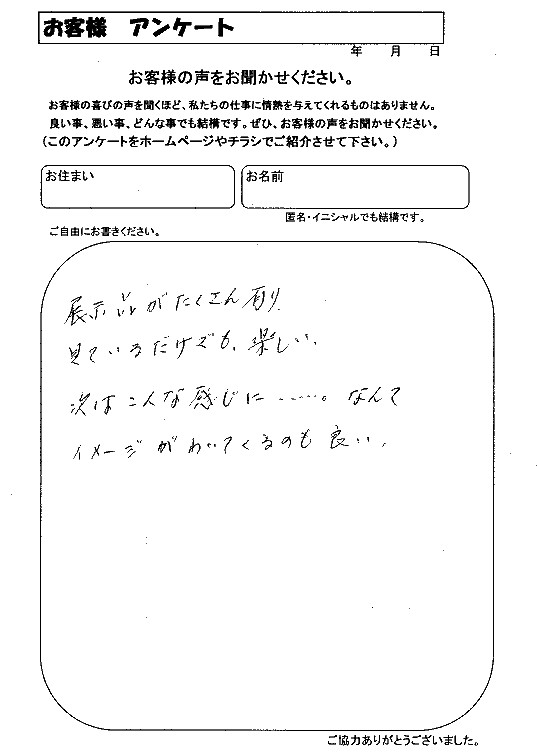 お客様　アンケート
年　月　日
お客様の声をお聞かせください。
お客様の喜びの声を聞くほど、私たちの仕事に情熱を与えてくれるものはありません。
良い事、悪い事、どんな事でも結構です。ぜひ、お客様の声をお聞かせください。
（このアンケートをホームページやチラシでご紹介させて下さい。）
お住まい
お名前
匿名・イニシャルでも結構です。
ご自由にお書きください。
展示品がたくさん有り
見ているだけでも、楽しい、
次はこんな感じに……。なんて
イメージがわいてくるのも良い、
ご協力ありがとうございました。